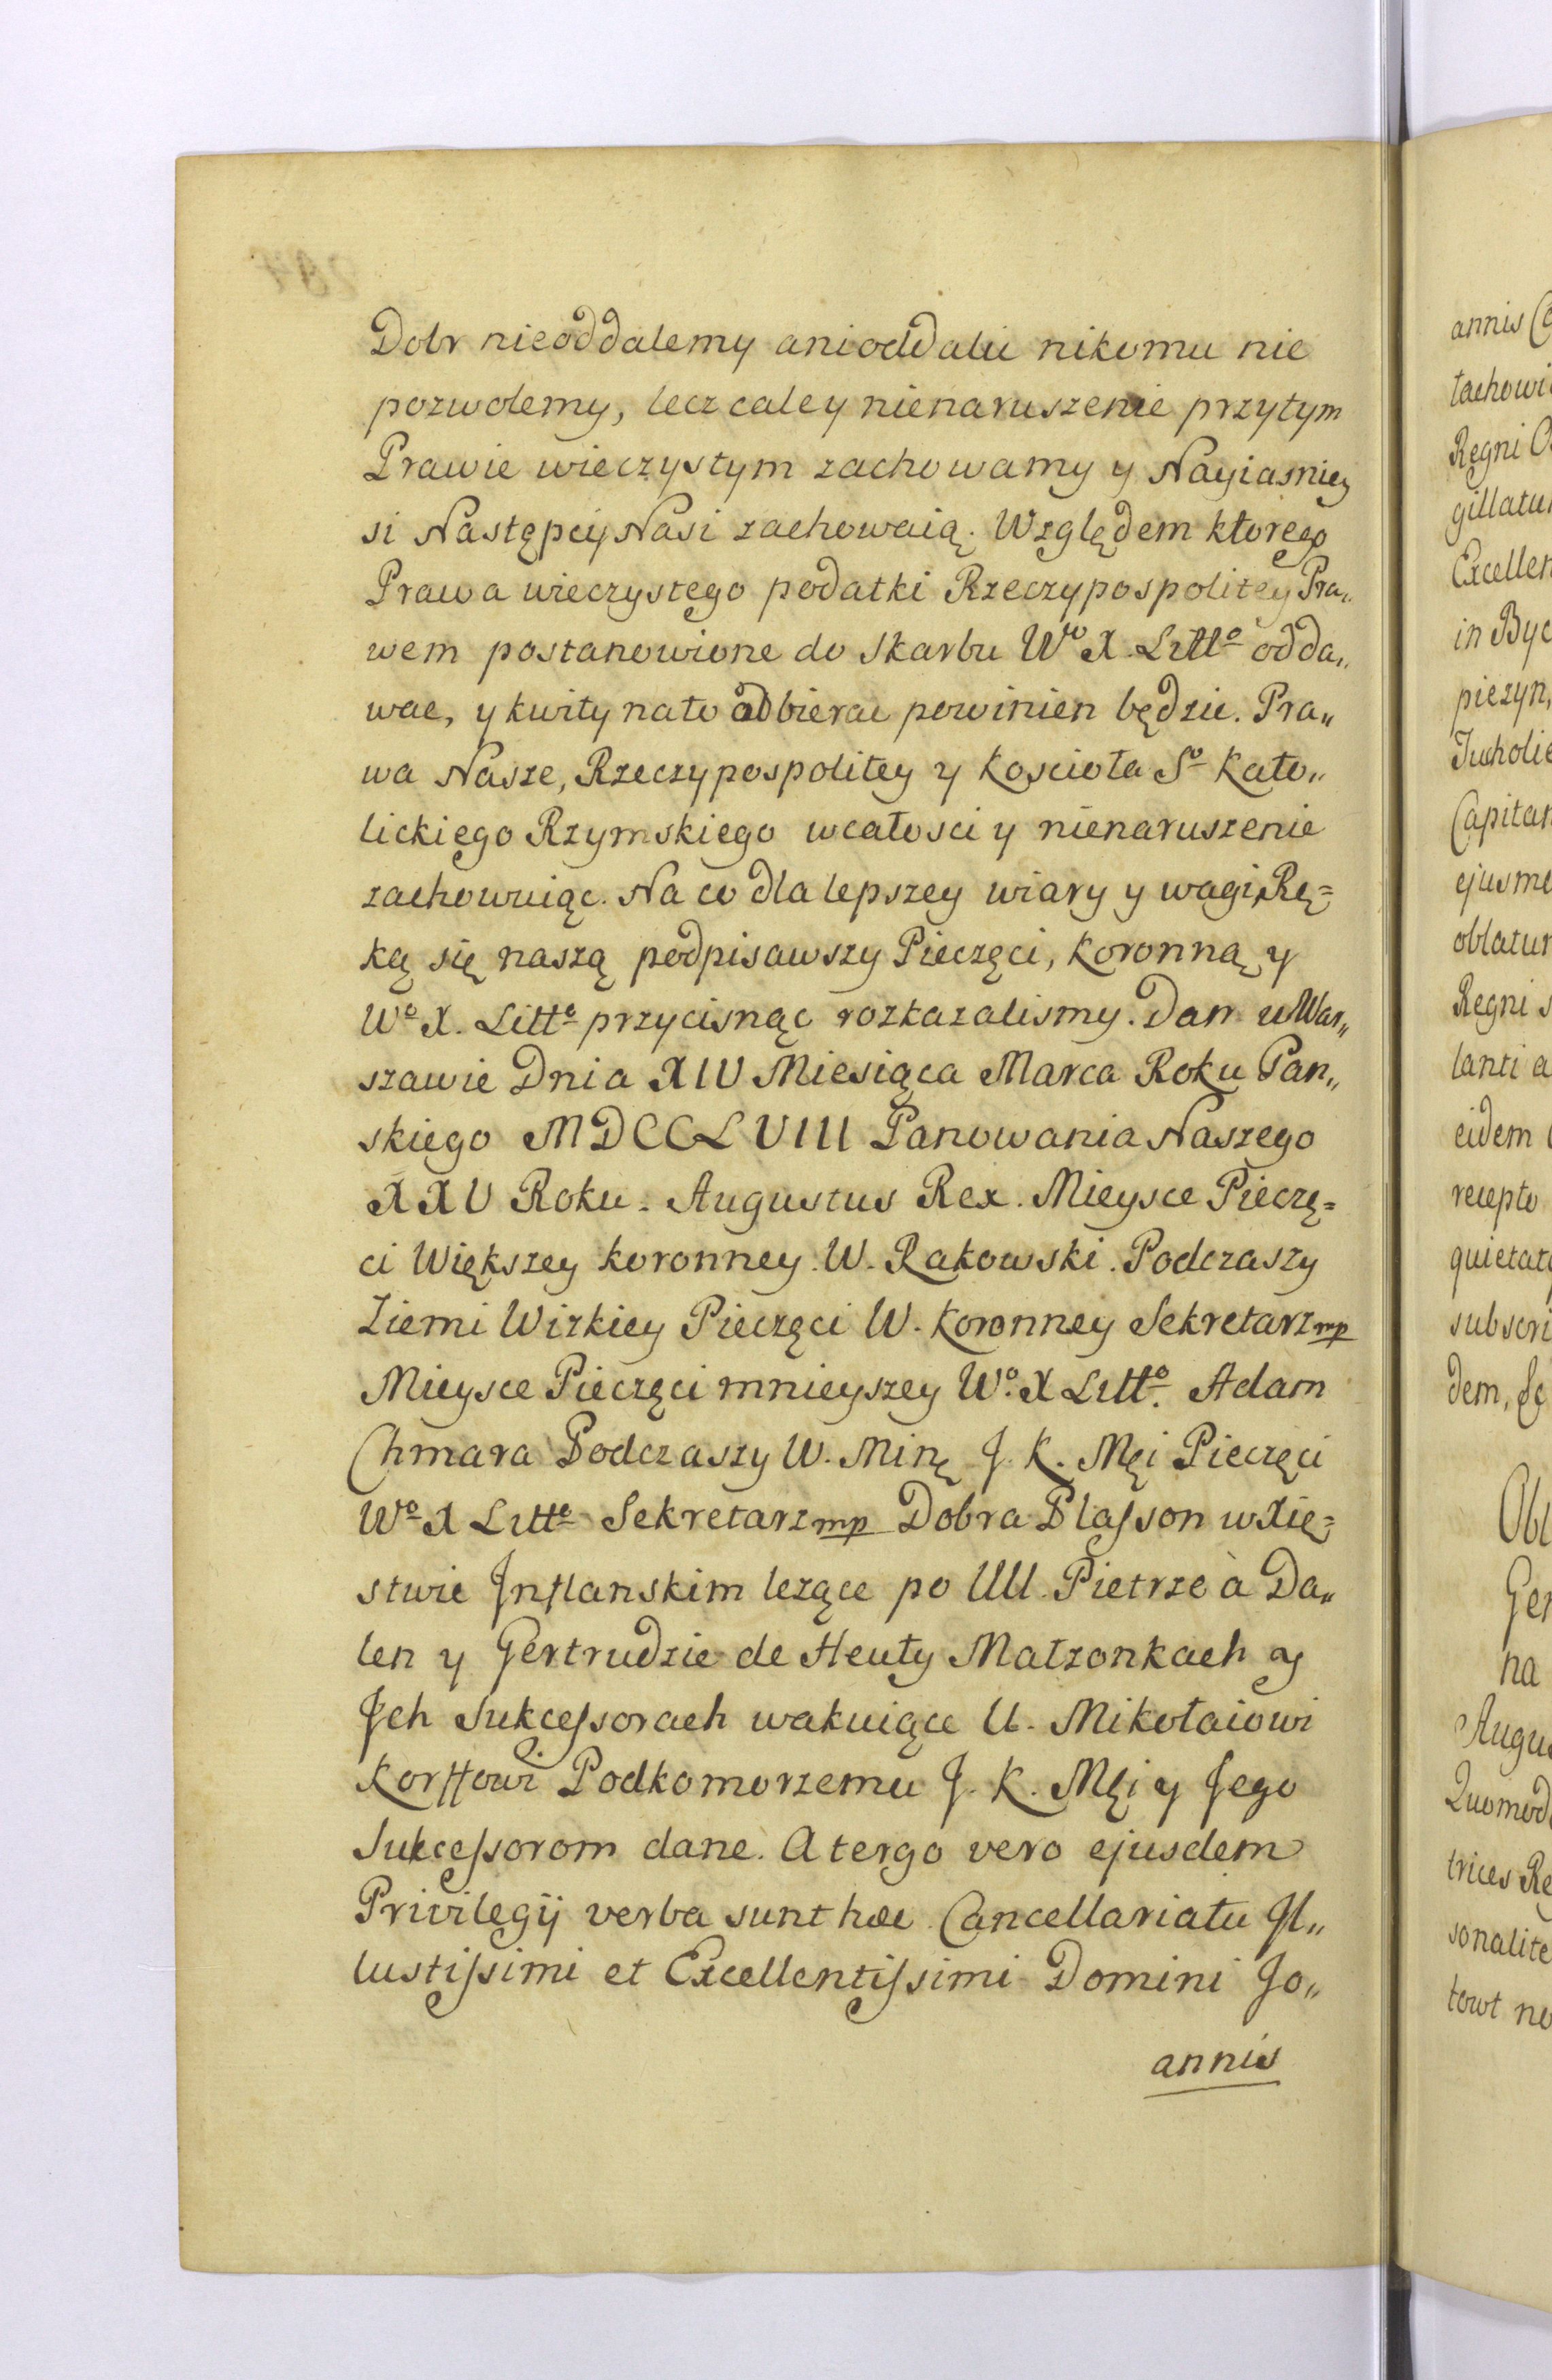 Dobr nieoddalemy ani oddalic nikomu nie
pozwolemy, lecz cale y nienaruszenie przytym
Prawie wieczystym zachowamy y Nayiasniey
si Następcy Nasi zachowaią. Względem ktorego
Prawa wieczystego podatki Rzeczypospolitey Pra„
wem postanowione do Skarbu Wgo X. Littgo odda„
wac, y kwity nato odbierac powinien będzie. Pra„
wa Nasze, Rzeczypospolitey y Koscioła So Kato„
lickiego Rzymskiego wcałosci y nienaruszenie
zachowuiąc. Na co dla lepszey wiary y wagi Rę=
ką się naszą podpisawszy Pieczęci, Koronną y
Wo X. Litto przycisnąc rozkazalismy. Dan w War„
szawie Dnia XIV Miesiąca Marca Roku Pan„
skiego MDCCLVIII Panowania Naszego
XXV Roku. Augustus Rex. Mieysce Pieczę=
ci Większey Koronney. W. Rakowski. Podczaszy
Ziemi Wizkiey Pieczęci W. Koronney Sekretarz mp
Mieysce Pieczęci mnieyszey Wo. X Litto. Adam
Chmara Podczaszy W. Minę J. K. Męi Pieczęci
Wo X Litto Sekretarz mp Dobra Plasson w Xię=
stwie Jnflanskim lezące po UU. Pietrze à Da„
len y Gertrudzie de Heuty Małzonkach y
Jch Sukcessorach wakuiące U. Mikołaiowi
Korffowi Podkomorzemu J. K. Męi y Jego
Sukcessorom dane. A tergo vero ejusdem
Privilegÿ verba sunt hæc. Cancellariatu Jl„
lustissimi et Excellentissimi Domini Jo„
annis
annis
tachowi
Regni
gillatu
Excellen
in Byc
piezyn,
Tucholie
Capitan
ejusme
oblatur
Regni s
lanti a
eidem
recepto
quietat
subscri
dem,
Obl
Ger
na
Augu
Quomod
trices Re
sonalite
towt no